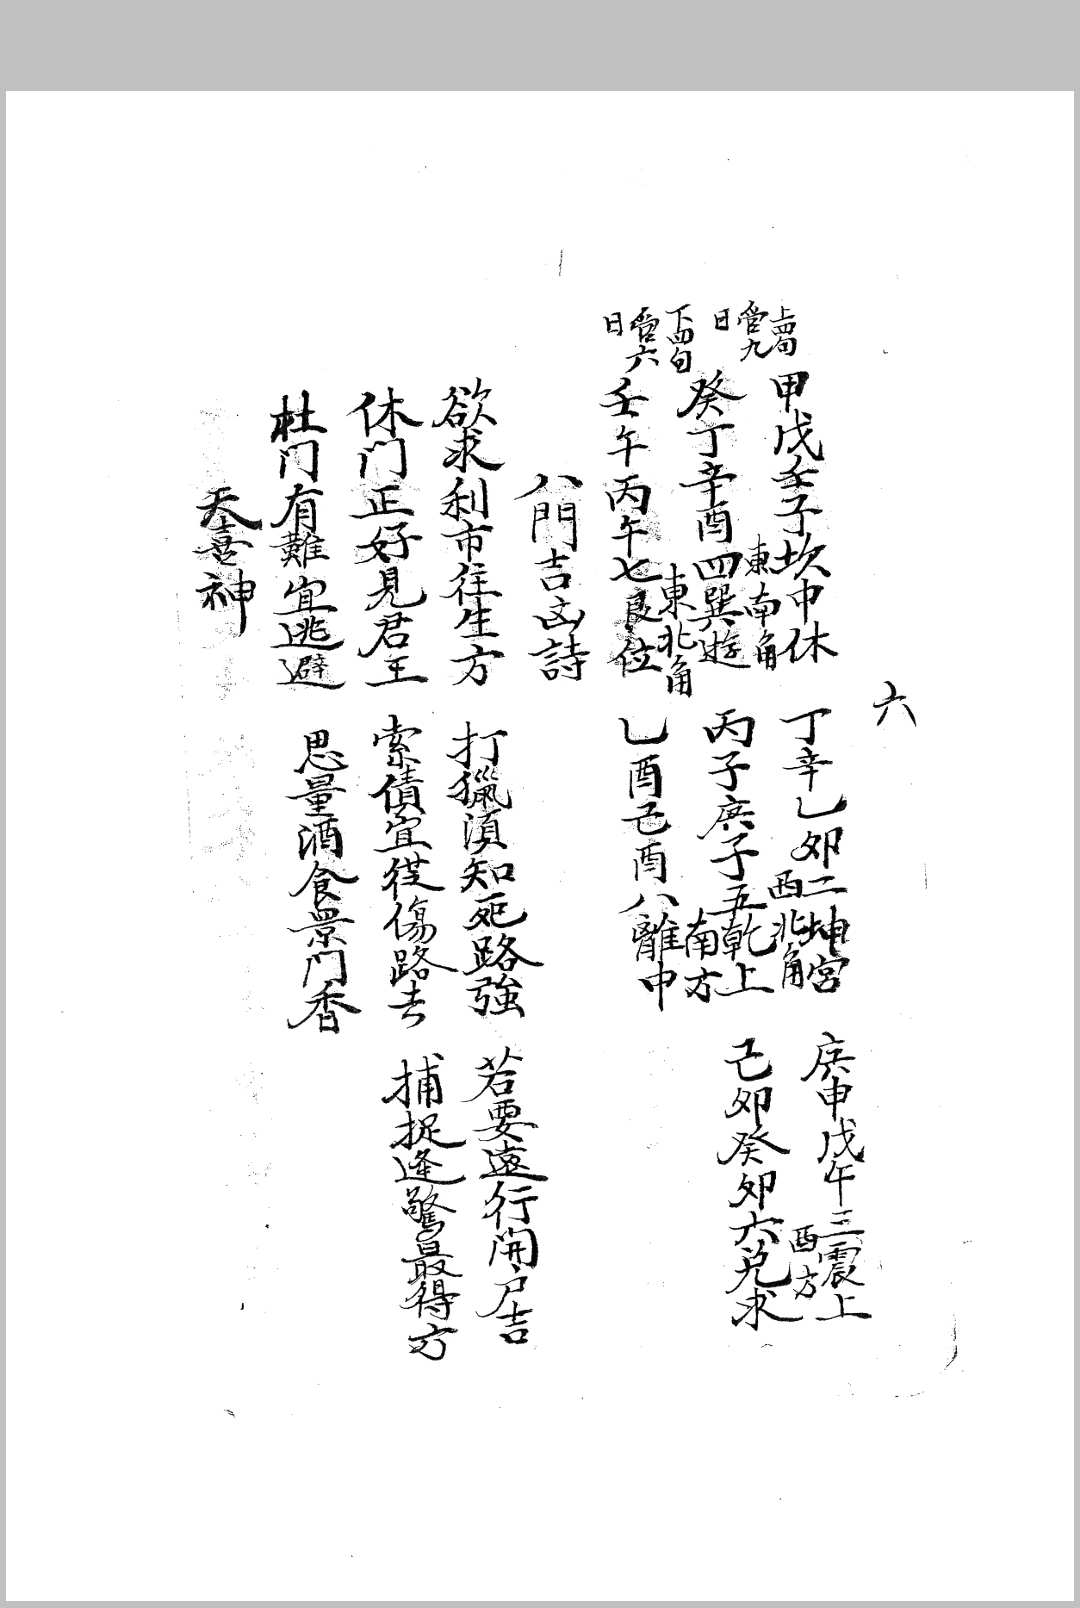 六
上四句
管九
日
甲戊壬子坎中休　丁辛乙卯二坤宮　庚申戊午三震上
東南角　西北角　西方
下四句
管六
日
癸丁辛酉四巽遊　丙子庚子五乾上　己卯癸卯六兌求
東北角　南方
壬午丙午七艮位　乙酉己酉八離中
八門吉凶詩
欲求利市往生方　打獵須知死路強　若要遠行開戶吉
休門正好見君王　索債宜從傷路去　捕捉逢驚最得方
杜門有難宜逃避　思量酒食景門香
天喜神